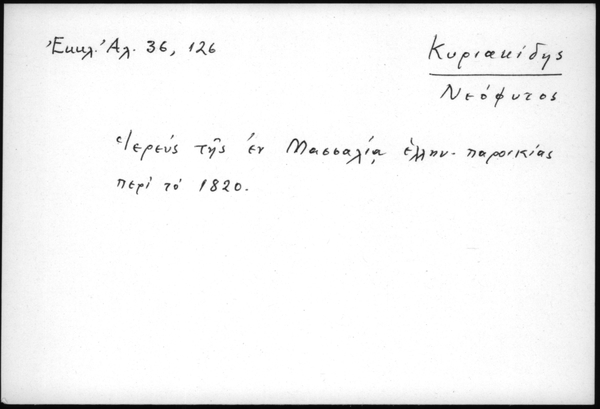 Ἐκκλ. Ἀλ. 36, 126
Κυριακίδης
Νεόφυτος
Ἱερεύς τῆς ἐν Μασσαλίᾳ ἑλλην. παροικίας
περί τό 1820.